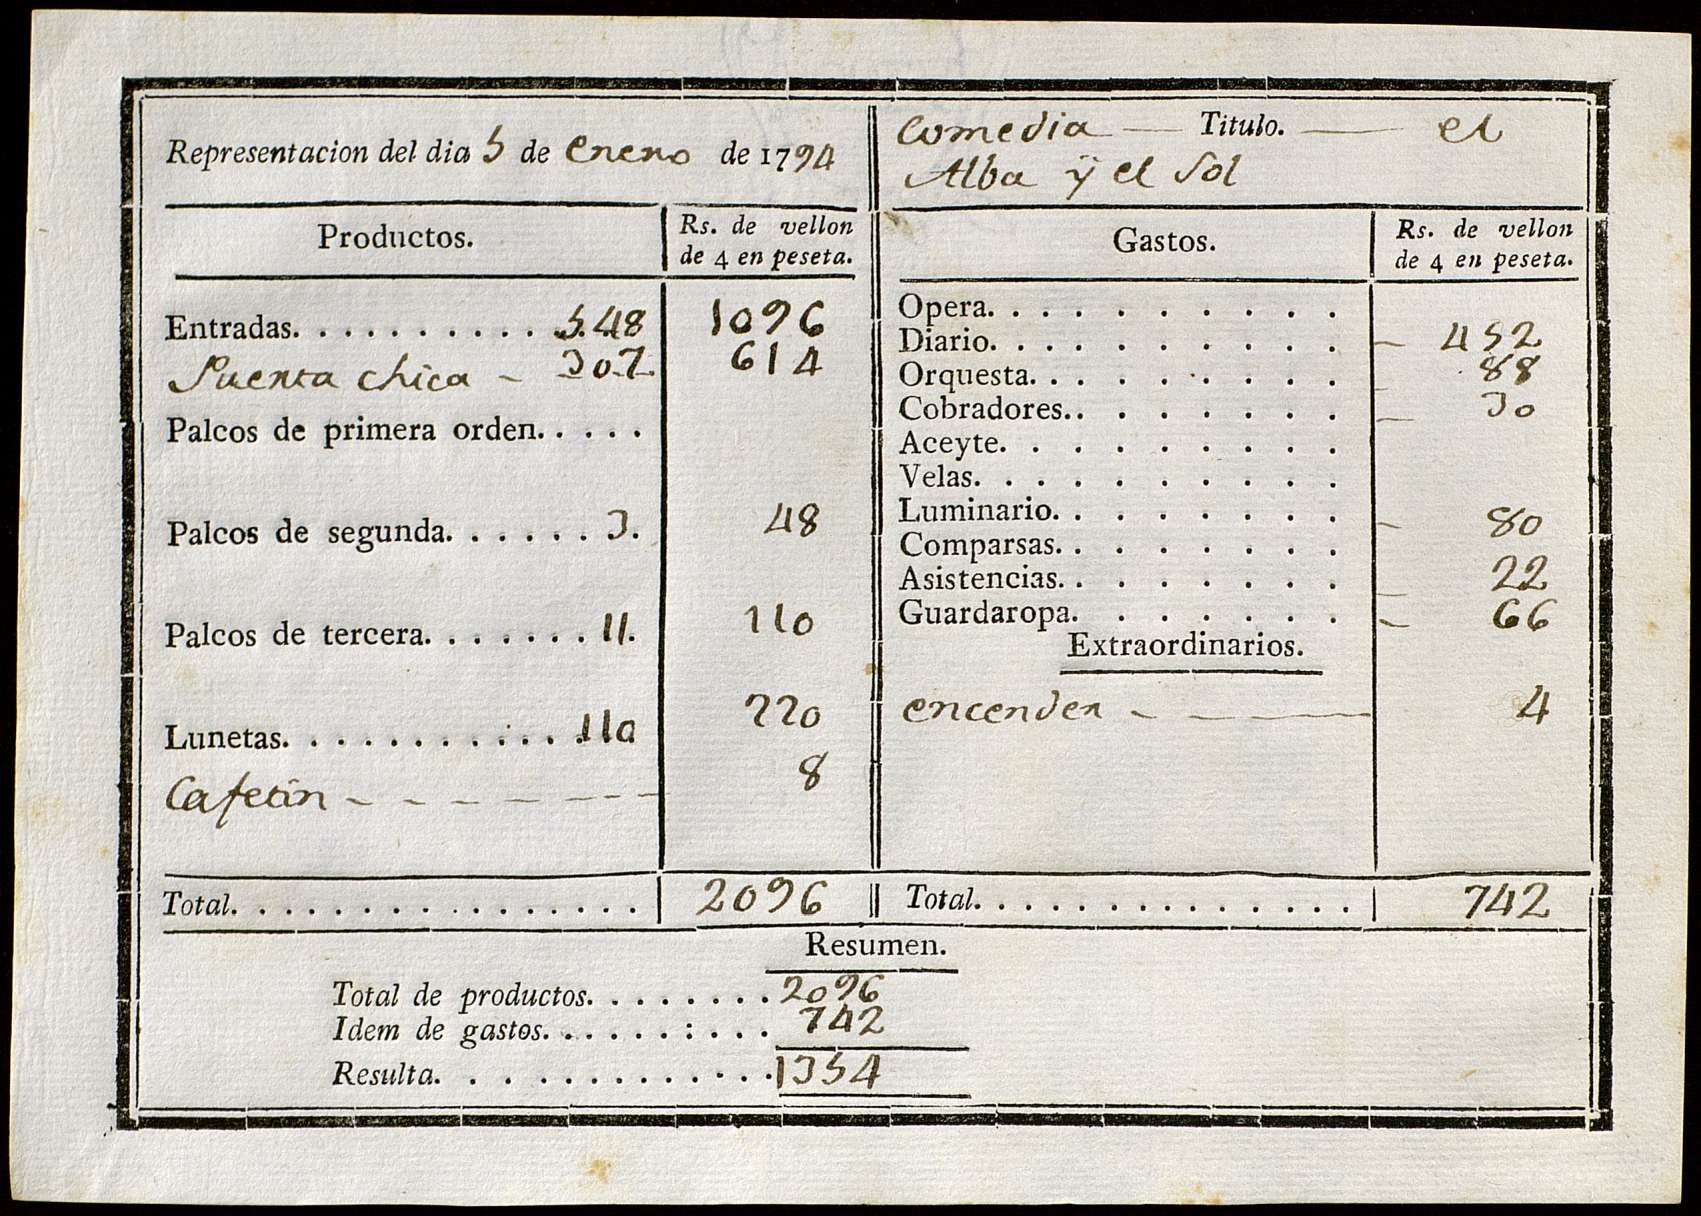 Representacion del dia 5 de enero de 1794
Comedia — Titulo. — el
Alba ÿ el Sol
Productos. Rs. de vellon
de 4 en peseta.
Entradas. . . . . . . . . . 548 1096
Puerta chica - 307. 614
Palcos de primera orden. . . . .
Palcos de segunda. . . . . . 3. 48
Palcos de tercera. . . . . . . 11. 110
Lunetas. . . . . . . . . . . . 110 220
Cafetin - - - - - - - - 8
Total. . . . . . . . . . . . . . . . 2096
Gastos. Rs. de vellon
de 4 en peseta.
Opera. . . . . . . . . .
Diario. . . . . . . . . . - 452
Orquesta. . . . . . . . . 88
Cobradores. . . . . . . . - 30
Aceyte. . . . . . . . .
Velas. . . . . . . . . .
Luminario. . . . . . . . - 80
Comparsas. . . . . . . .
Asistencias. . . . . . . . - 22
Guardaropa. . . . . . . - 66
Extraordinarios.
encender - - - 4
Total. . . . . . . . . . . . . . . 742
Resumen.
Total de productos. . . . . . . . 2096
Idem de gastos. . . . . . : . . . 742
Resulta. . . . . . . . . . . . 1354